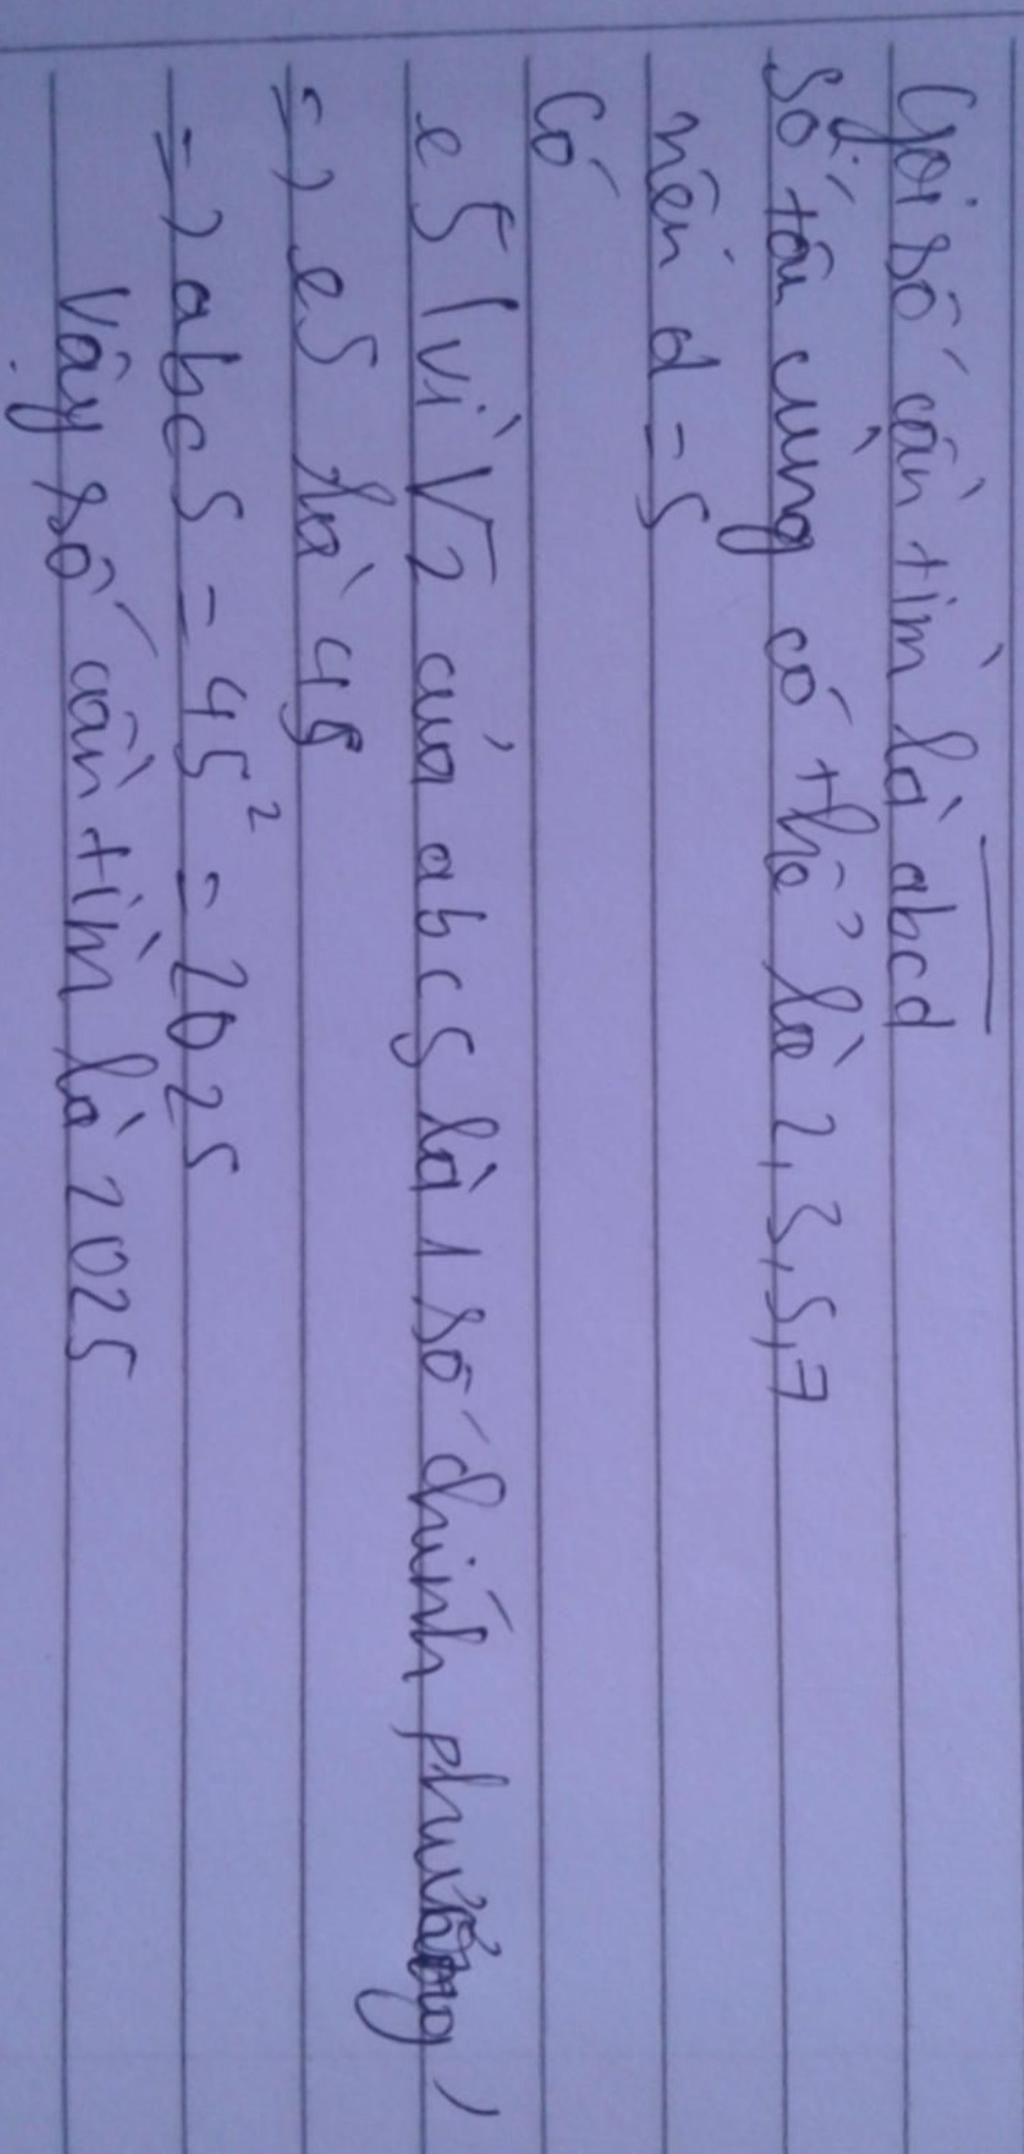 Gọi số cần tìm là abcd
Số tận cùng có thể là 2, 3, 5, 7
nên d = 5
Có
e5 (vì √2 của abc5 là 1 số chính phương)
=) e5 là 45
=) abc5 = 45² = 2025
Vậy số cần tìm là 2025